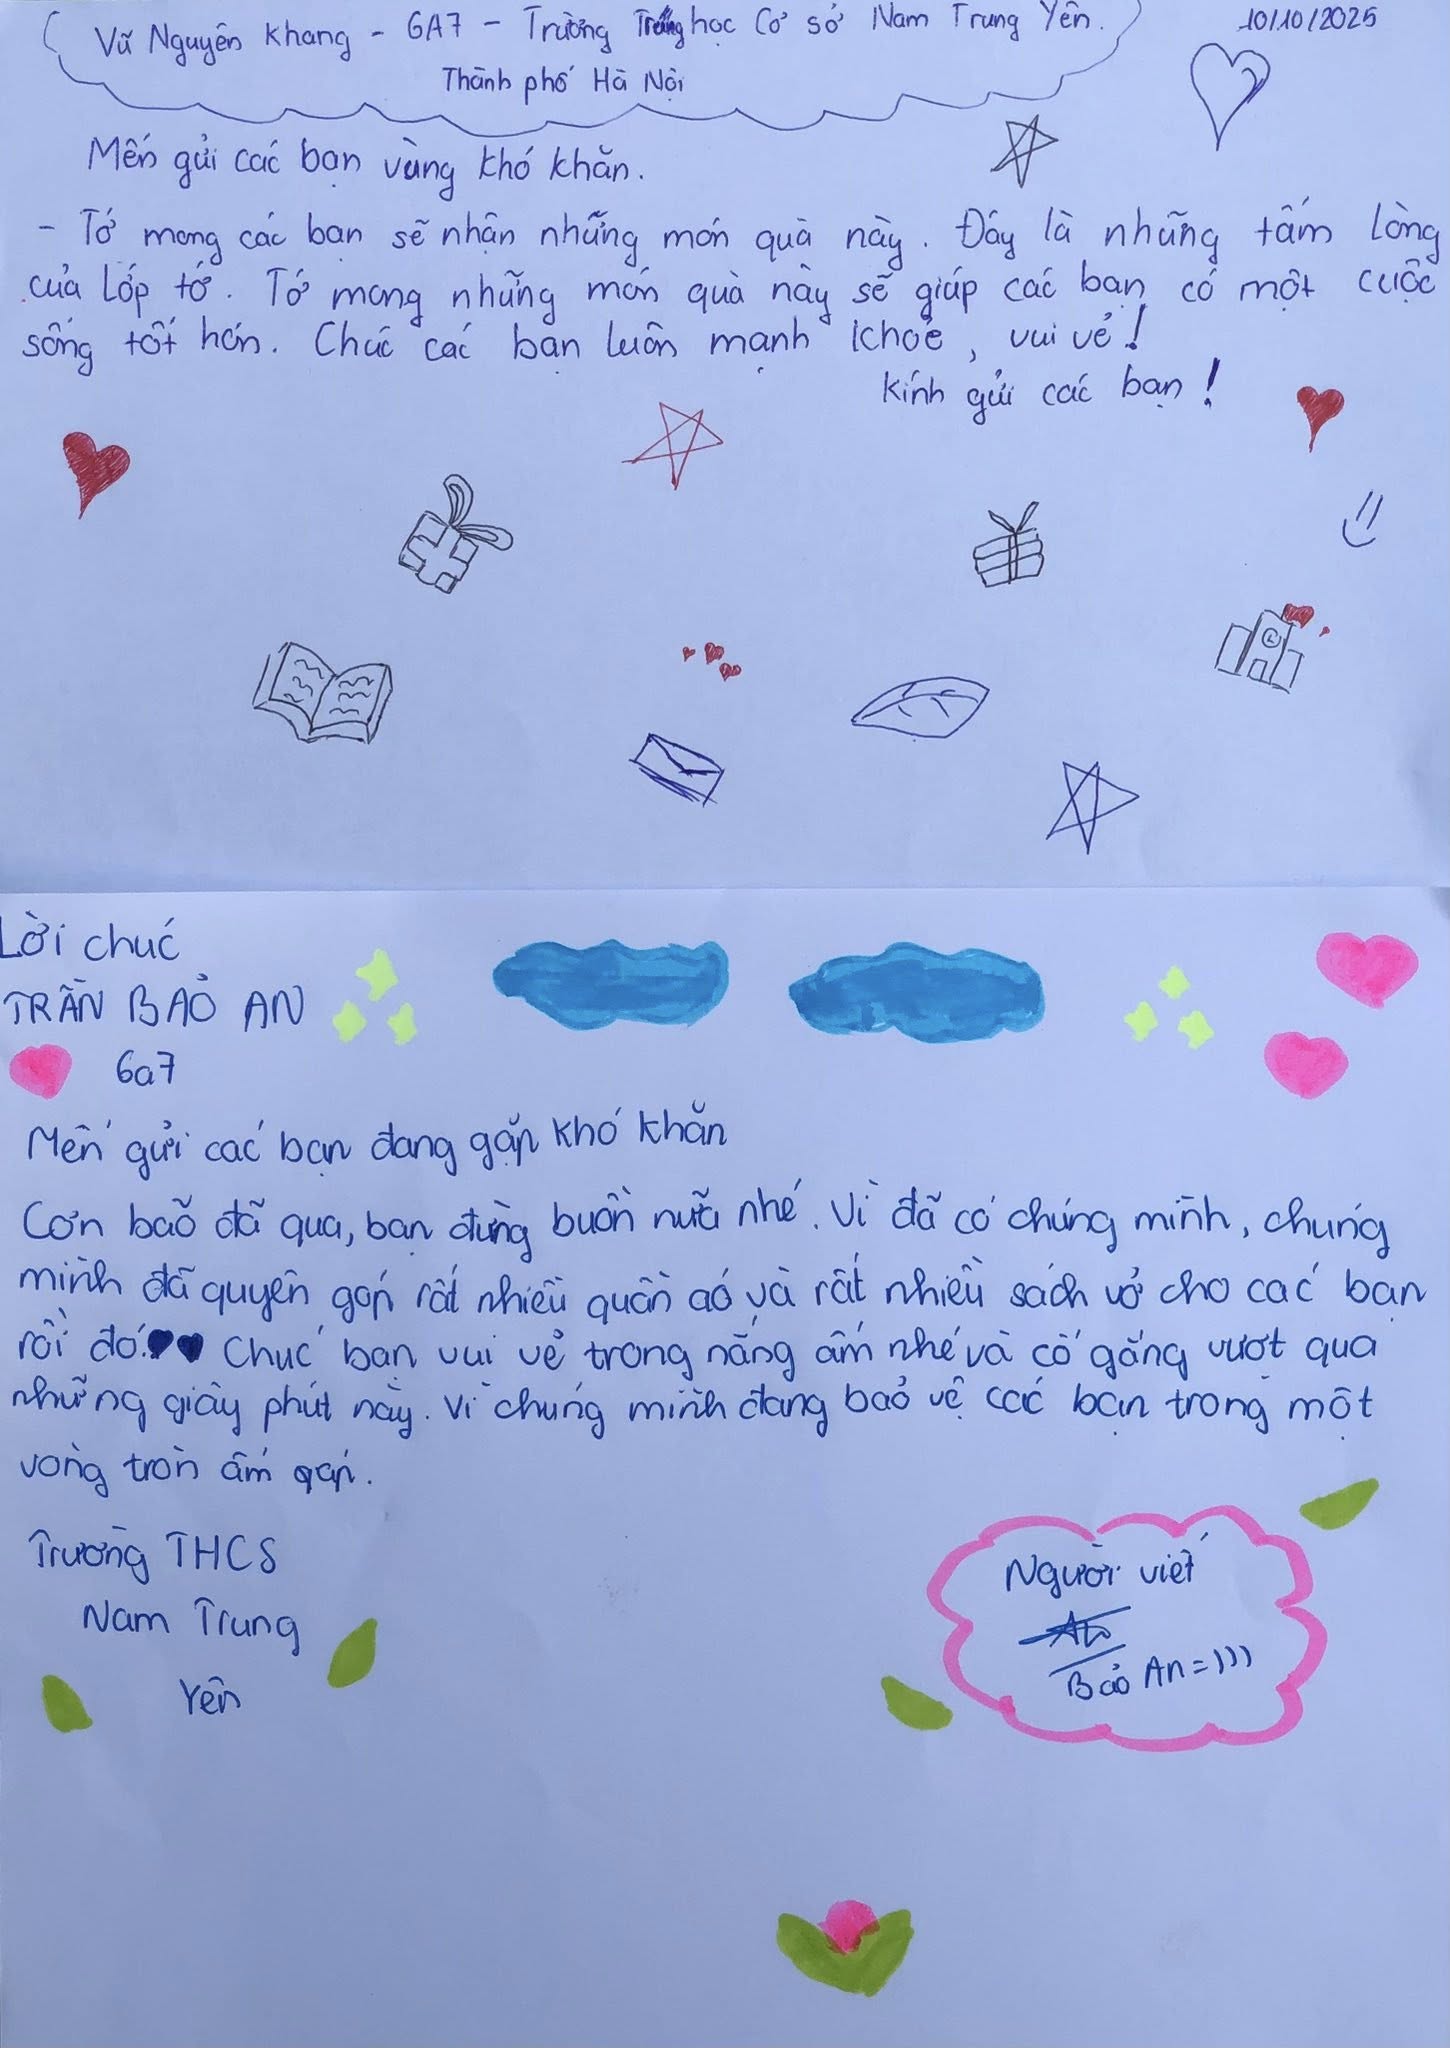 Vũ Nguyên Khang - 6A7 - Trường Trung học Cơ sở Nam Trung Yên.
10/10/2025
Thành phố Hà Nội
Mến gửi các bạn vùng khó khăn.
- Tớ mong các bạn sẽ nhận những món quà này. Đây là những tấm lòng
của lớp tớ. Tớ mong những món quà này sẽ giúp các bạn có một cuộc
sống tốt hơn. Chúc các bạn luôn mạnh khoẻ, vui vẻ!
Kính gửi các bạn!
Lời chúc
TRẦN BẢO AN
6a7
Mến gửi các bạn đang gặp khó khăn
Cơn bão đã qua, bạn đừng buồn nữa nhé. Vì đã có chúng mình, chúng
mình đã quyên góp rất nhiều quần áo và rất nhiều sách vở cho các bạn
rồi đó. Chúc bạn vui vẻ trong nắng ấm nhé và cố gắng vượt qua
những giây phút này. Vì chúng mình đang bảo vệ các bạn trong một
vòng tròn ấm gáp.
Trường THCS
Nam Trung
Yên
Người viết
Bảo An =)))